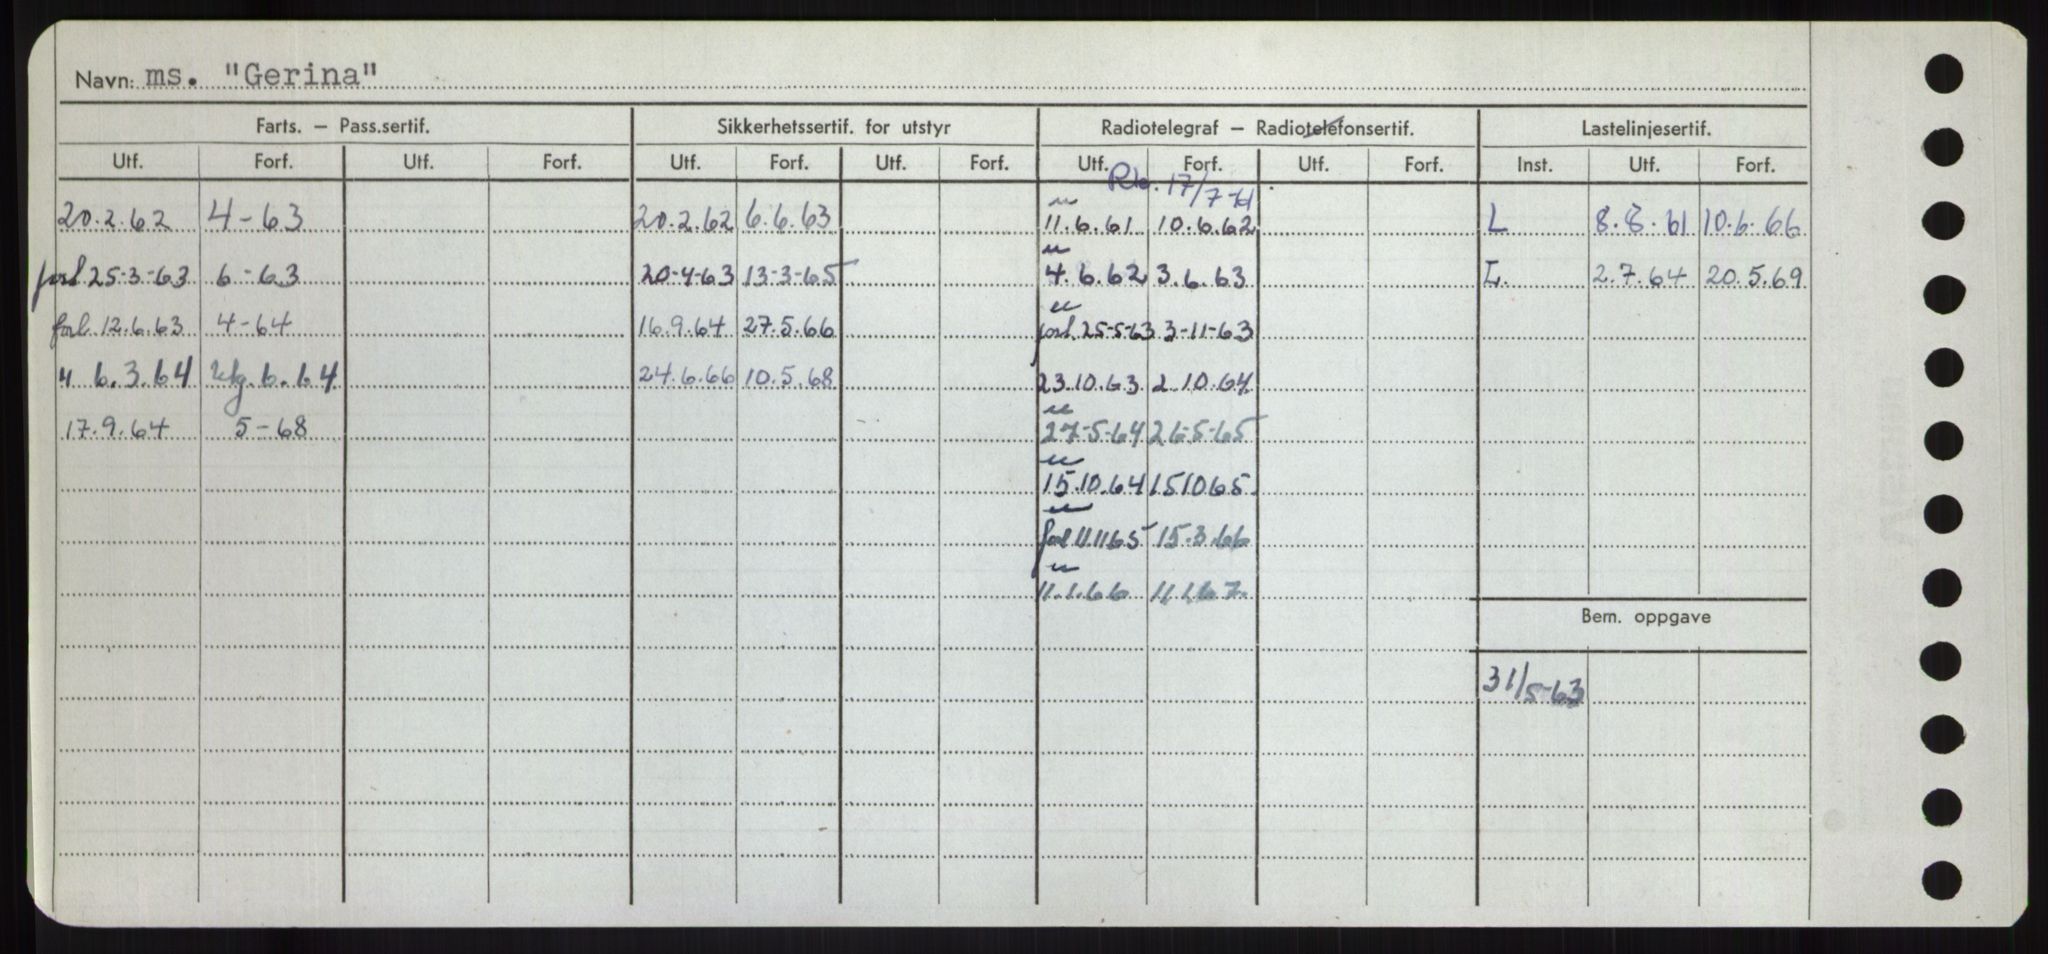 Navn: ms. "Gerina"
Farts. — Pass.sertif. Sikkerhetssertif. for utstyr Radiotelegraf — Radiotelefonsertif. Lastelinjesertif.
Utf. Forf. Utf. Forf. Utf. Forf. Utf. Forf. Utf. Forf. Utf. Forf. Inst. Utf. Forf.
17/7-61
20.2.62 4-63 20.2.62 6.6.63 11.6.61 10.6.62 L 8.8.61 10.6.66
forl 25-3-63 6-63 20-4-63 13-3-65 4.6.62 3.6.63 L. 2.7.64 20.5.69
forl. 12.6.63 4-64 16.9.64 27.5.66 forl. 25-5-63 3-11-63
" 6.3.64 utg. 6.64 24.6.66 10.5.68 23.10.63 2.10.64
17.9.64 5-68 27-5-64 26-5-65
15.10.64 15.10.65
forl 11.11.65 15.3.66
11.1.66 11.1.67.
Bem. oppgave
31/5-63